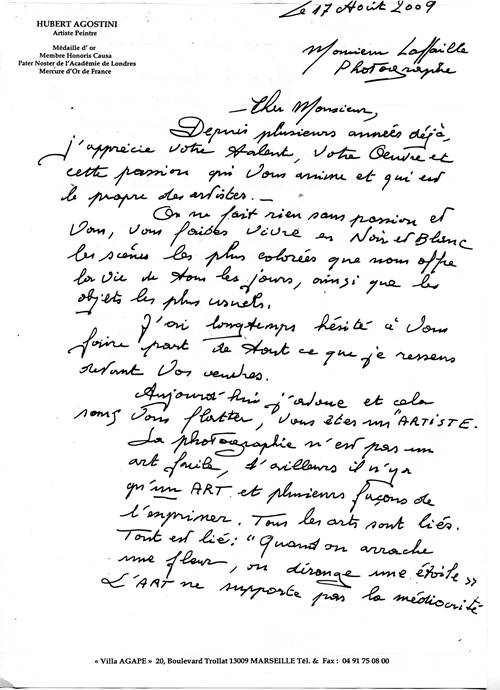 HUBERT AGOSTINI
Artiste Peintre
Médaille d' or
Membre Honoris Causa
Pater Noster de l'Académie de Londres
Mercure d'Or de France
Le 17 Août 2009
Monsieur Laffaille
Photographe
- Cher Monsieur,
Depuis plusieurs années déjà,
j'apprécie votre talent, votre Oeuvre et
cette passion qui vous anime et qui est
le propre des artistes. -
On ne fait rien sans passion et
Vous, vous faites vivre en Noir et Blanc
les scènes les plus colorées que nous offre
la vie de tous les jours, ainsi que les
objets les plus usuels.
J'ai longtemps hésité à vous
faire part de tout ce que je ressens
devant vos oeuvres.
Aujourd'hui j'avoue et cela
sans vous flatter, vous êtes un "ARTISTE.
La photographie n'est pas un
art facile, d'ailleurs il n'y a
qu'un ART et plusieurs façons de
l'exprimer. Tous les arts sont liés.
Tout est lié : "Quand on arrache
une fleur, on dérange une étoile »
L'ART ne supporte pas la médiocrité
« Villa AGAPE » 20, Boulevard Trollat 13009 MARSEILLE Tél. & Fax : 04 91 75 08 00